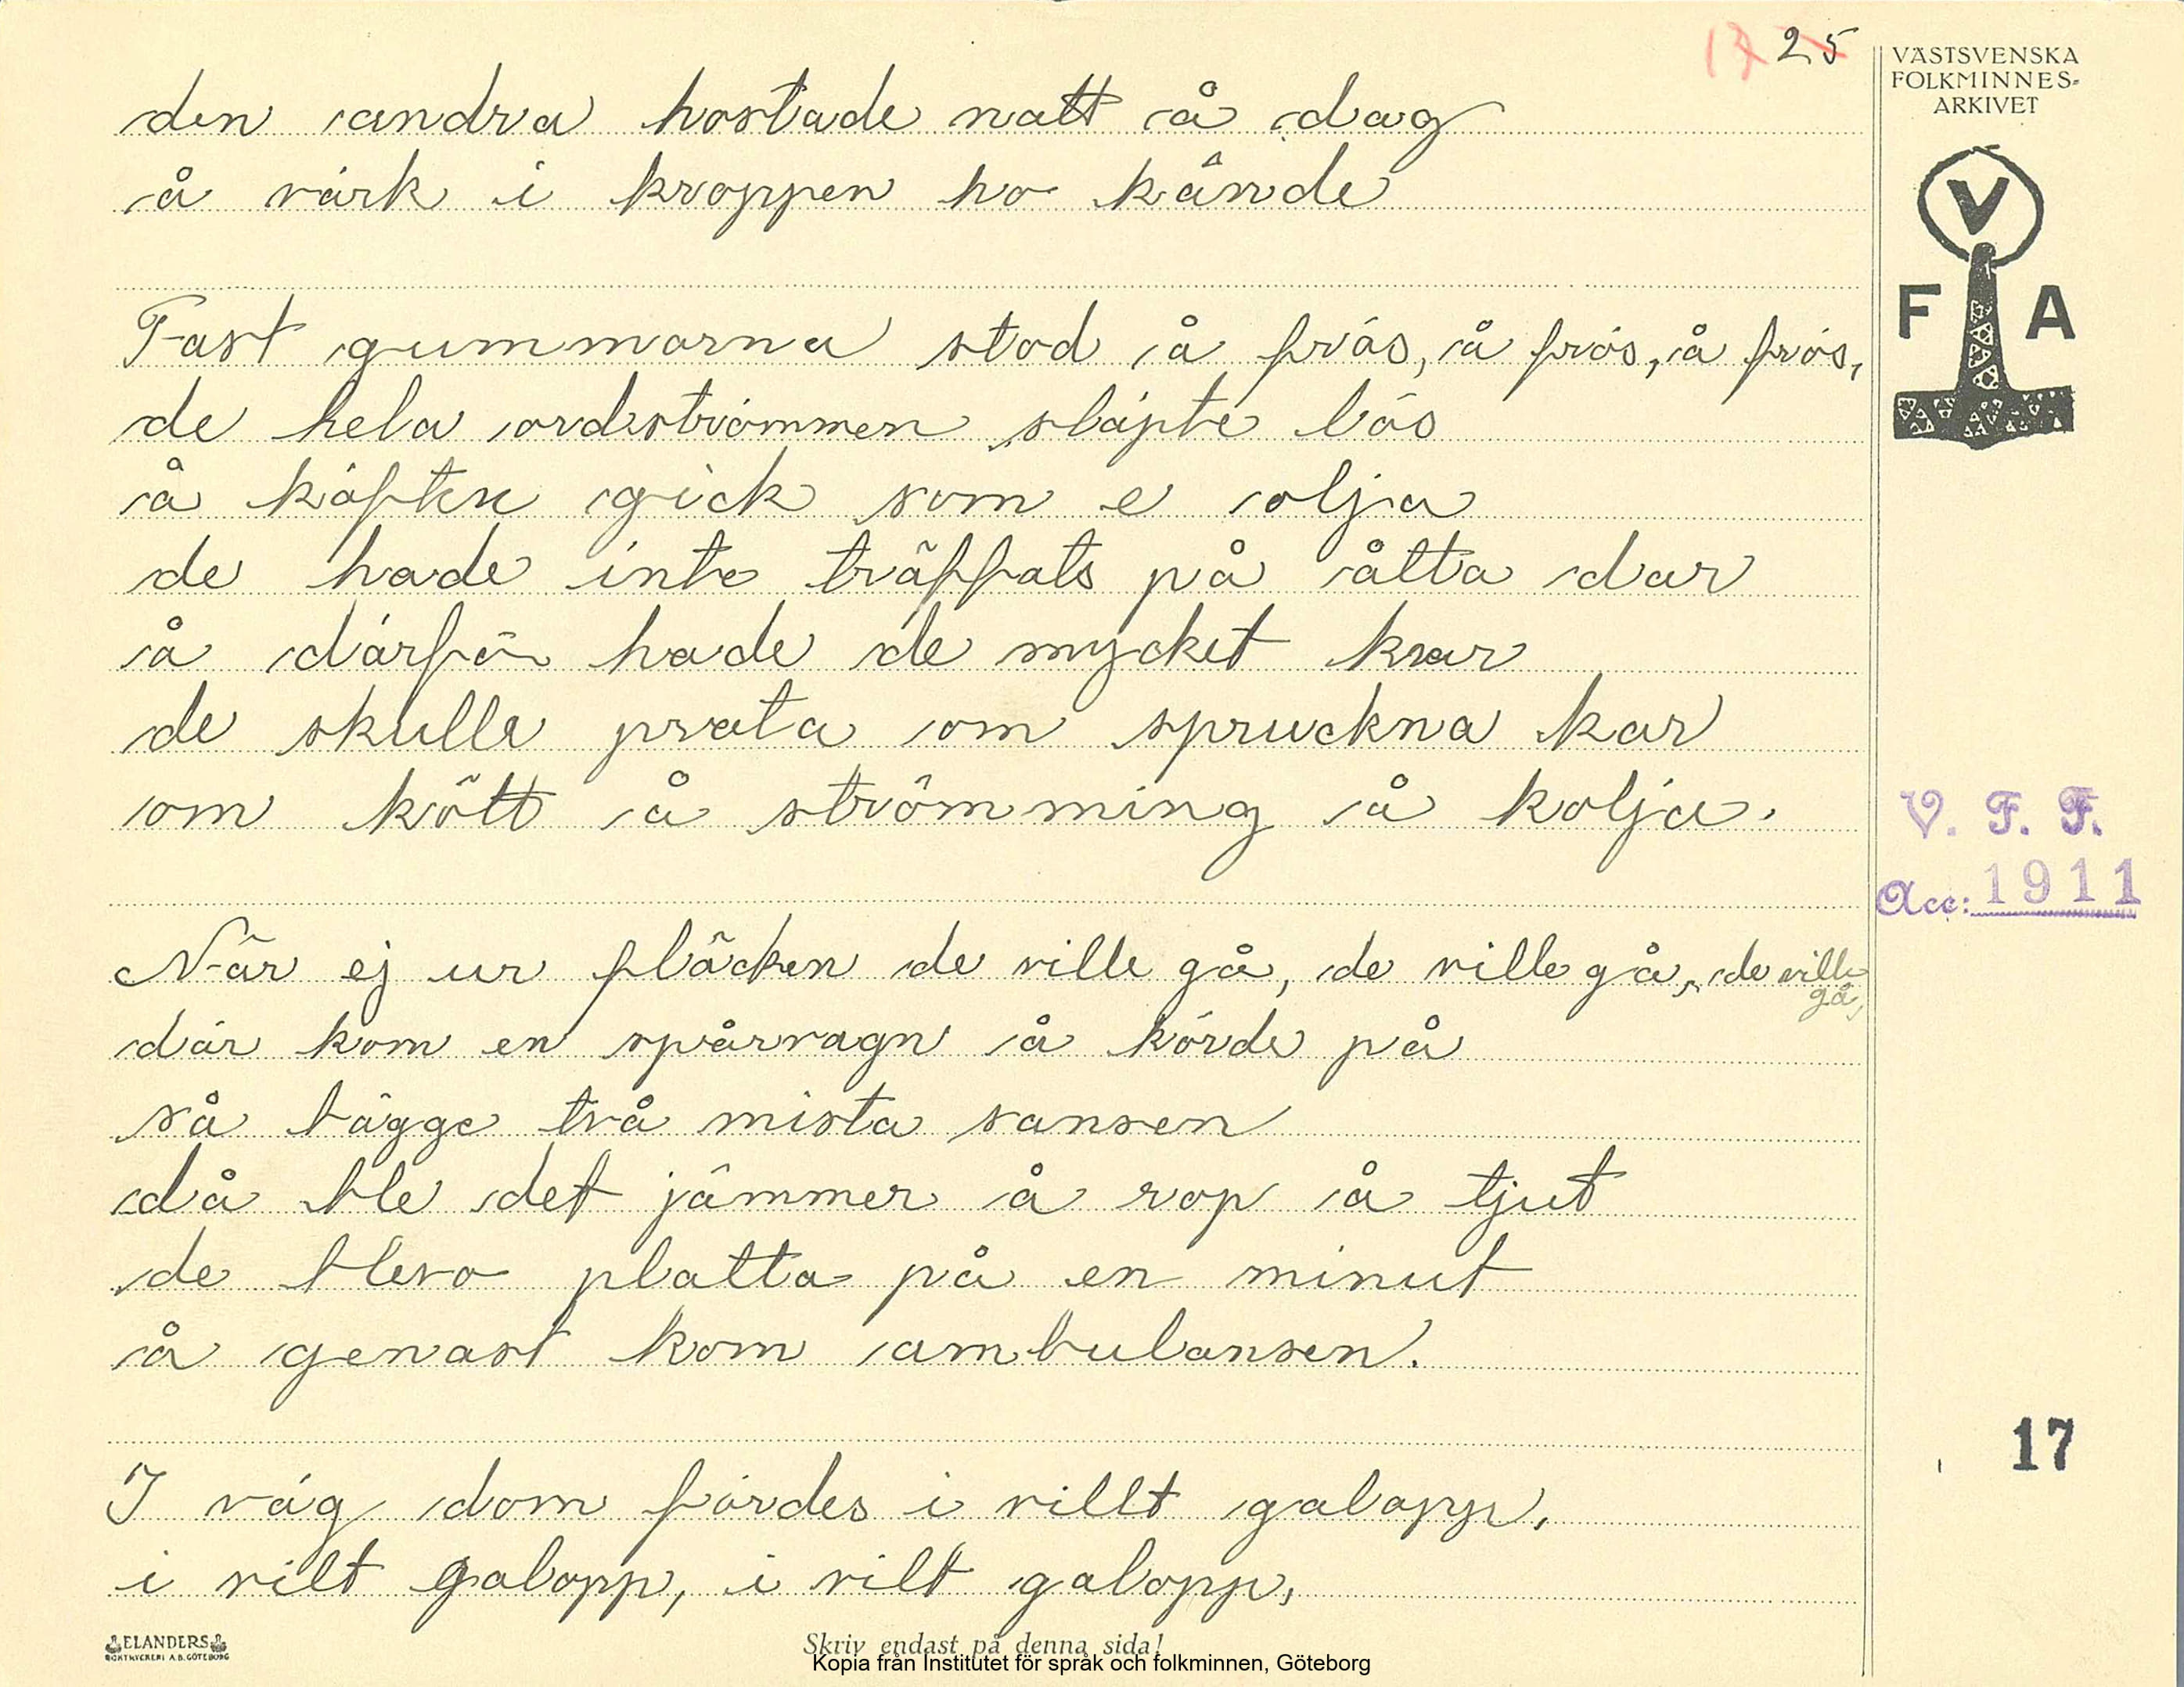 17 25
VÄSTSVENSKA
FOLKMINNES-
ARKIVET
V
F A
den andra hostade natt å dag
å värk i kroppen ho kände
Fast gummorna stod å frös, å frös, å frös,
de hela ordströmmen släpte lös
å käften gick som e olja
de hade inte träffats på åtta dar
å därför hade de mycket kvar
de skulle prata om spruckna kar
om kött å strömming å kolja.
När ej ur fläcken de ville gå, de ville gå, de ville
gå,
där kom en spårvagn å körde på
så bägge två mista sansen
då ble det jämmer å rop å tjut
de blevo platta på en minut
å genast kom ambulansen.
I väg dom fördes i villt galopp,
i vilt galopp, i vilt galopp,
V. F. F.
Acc: 1911
17
ELANDERS
BOKTRYCKERI A.B. GÖTEBORG
Skriv endast på denna sida!
Kopia från Institutet för språk och folkminnen, Göteborg